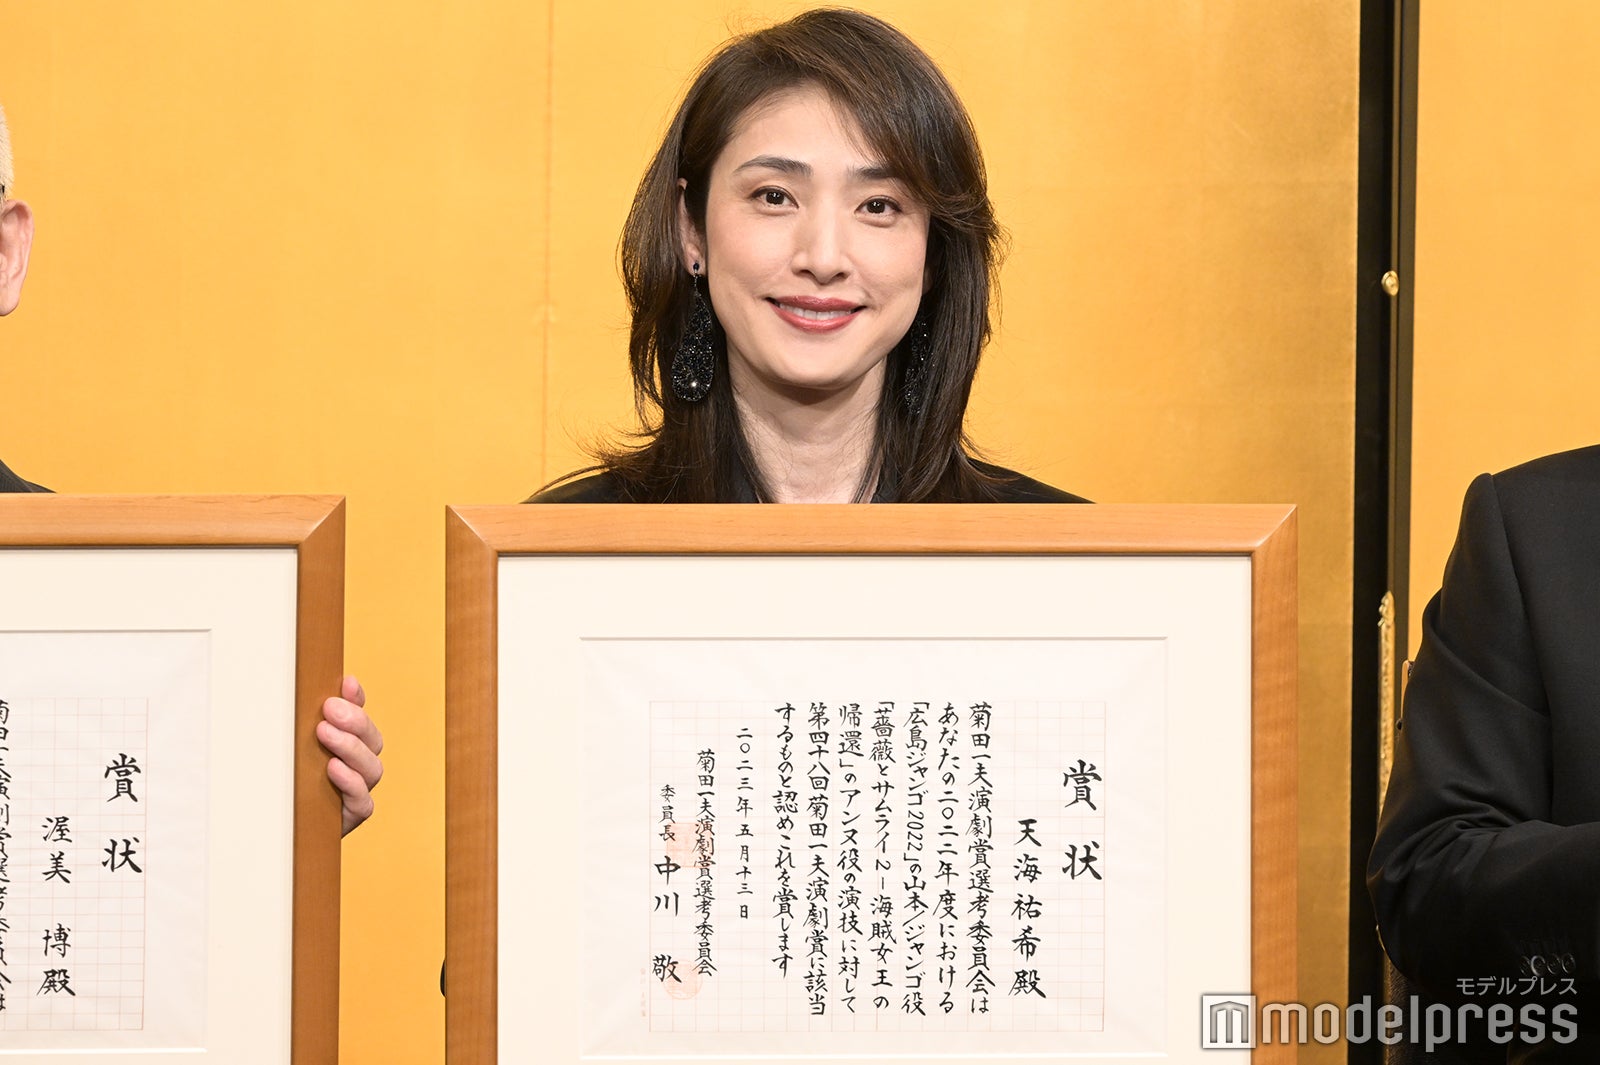 賞状
天海祐希殿
菊田一夫演劇賞選考委員会は
あなたの二〇二二年度における
「広島ジャンゴ2022」の山本/ジャンゴ役
「薔薇とサムライ2-海賊女王の
帰還」のアンヌ役の演技に対して
第四十八回菊田一夫演劇賞に該当
するものと認めこれを賞します
二〇二三年五月十三日
菊田一夫演劇賞選考委員会
委員長 中川 敬
賞状
渥美 博殿
モデルプレス
modelpress